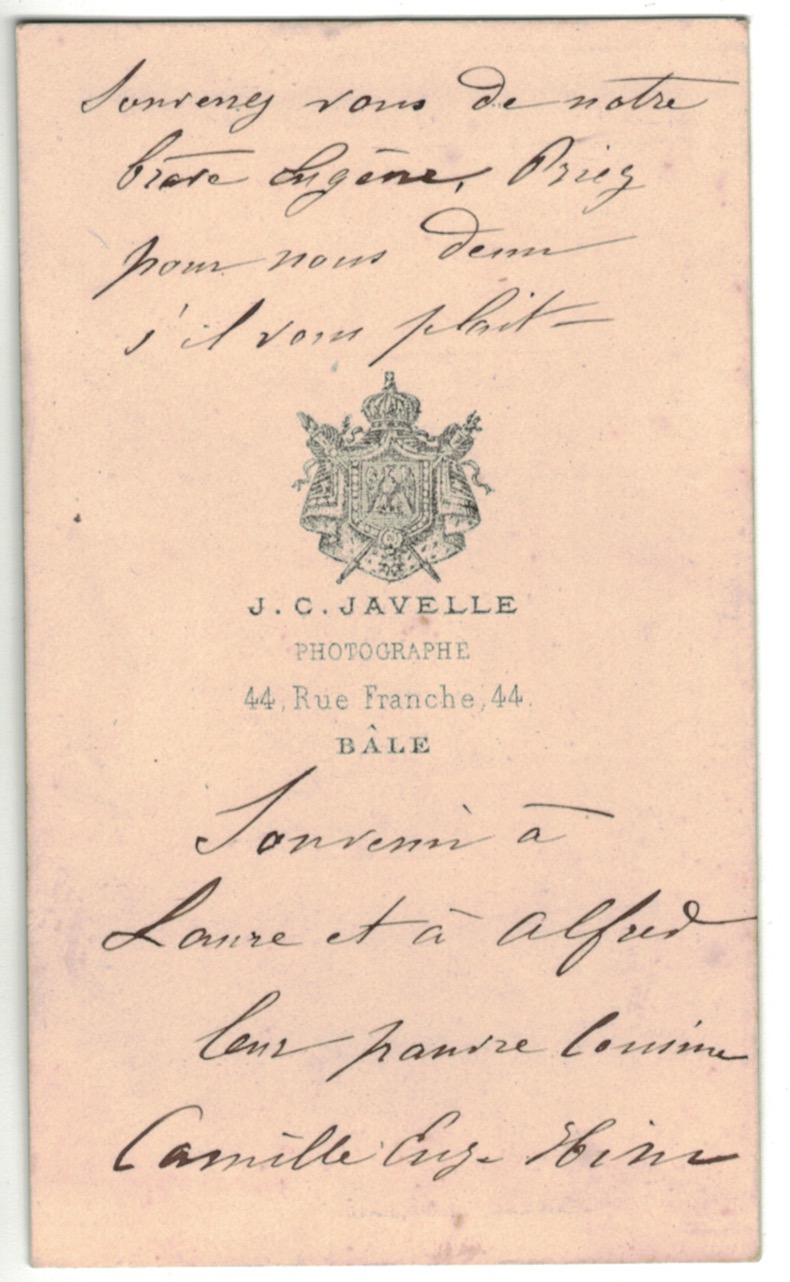 Souvenez vous de notre
brave Eugène, Priez
pour nous deux
s'il vous plait –
J. C. JAVELLE
PHOTOGRAPHE
44, Rue Franche, 44.
BÂLE
Souvenir à
Laure et à Alfred
leur pauvre Cousine
Camille Eug.